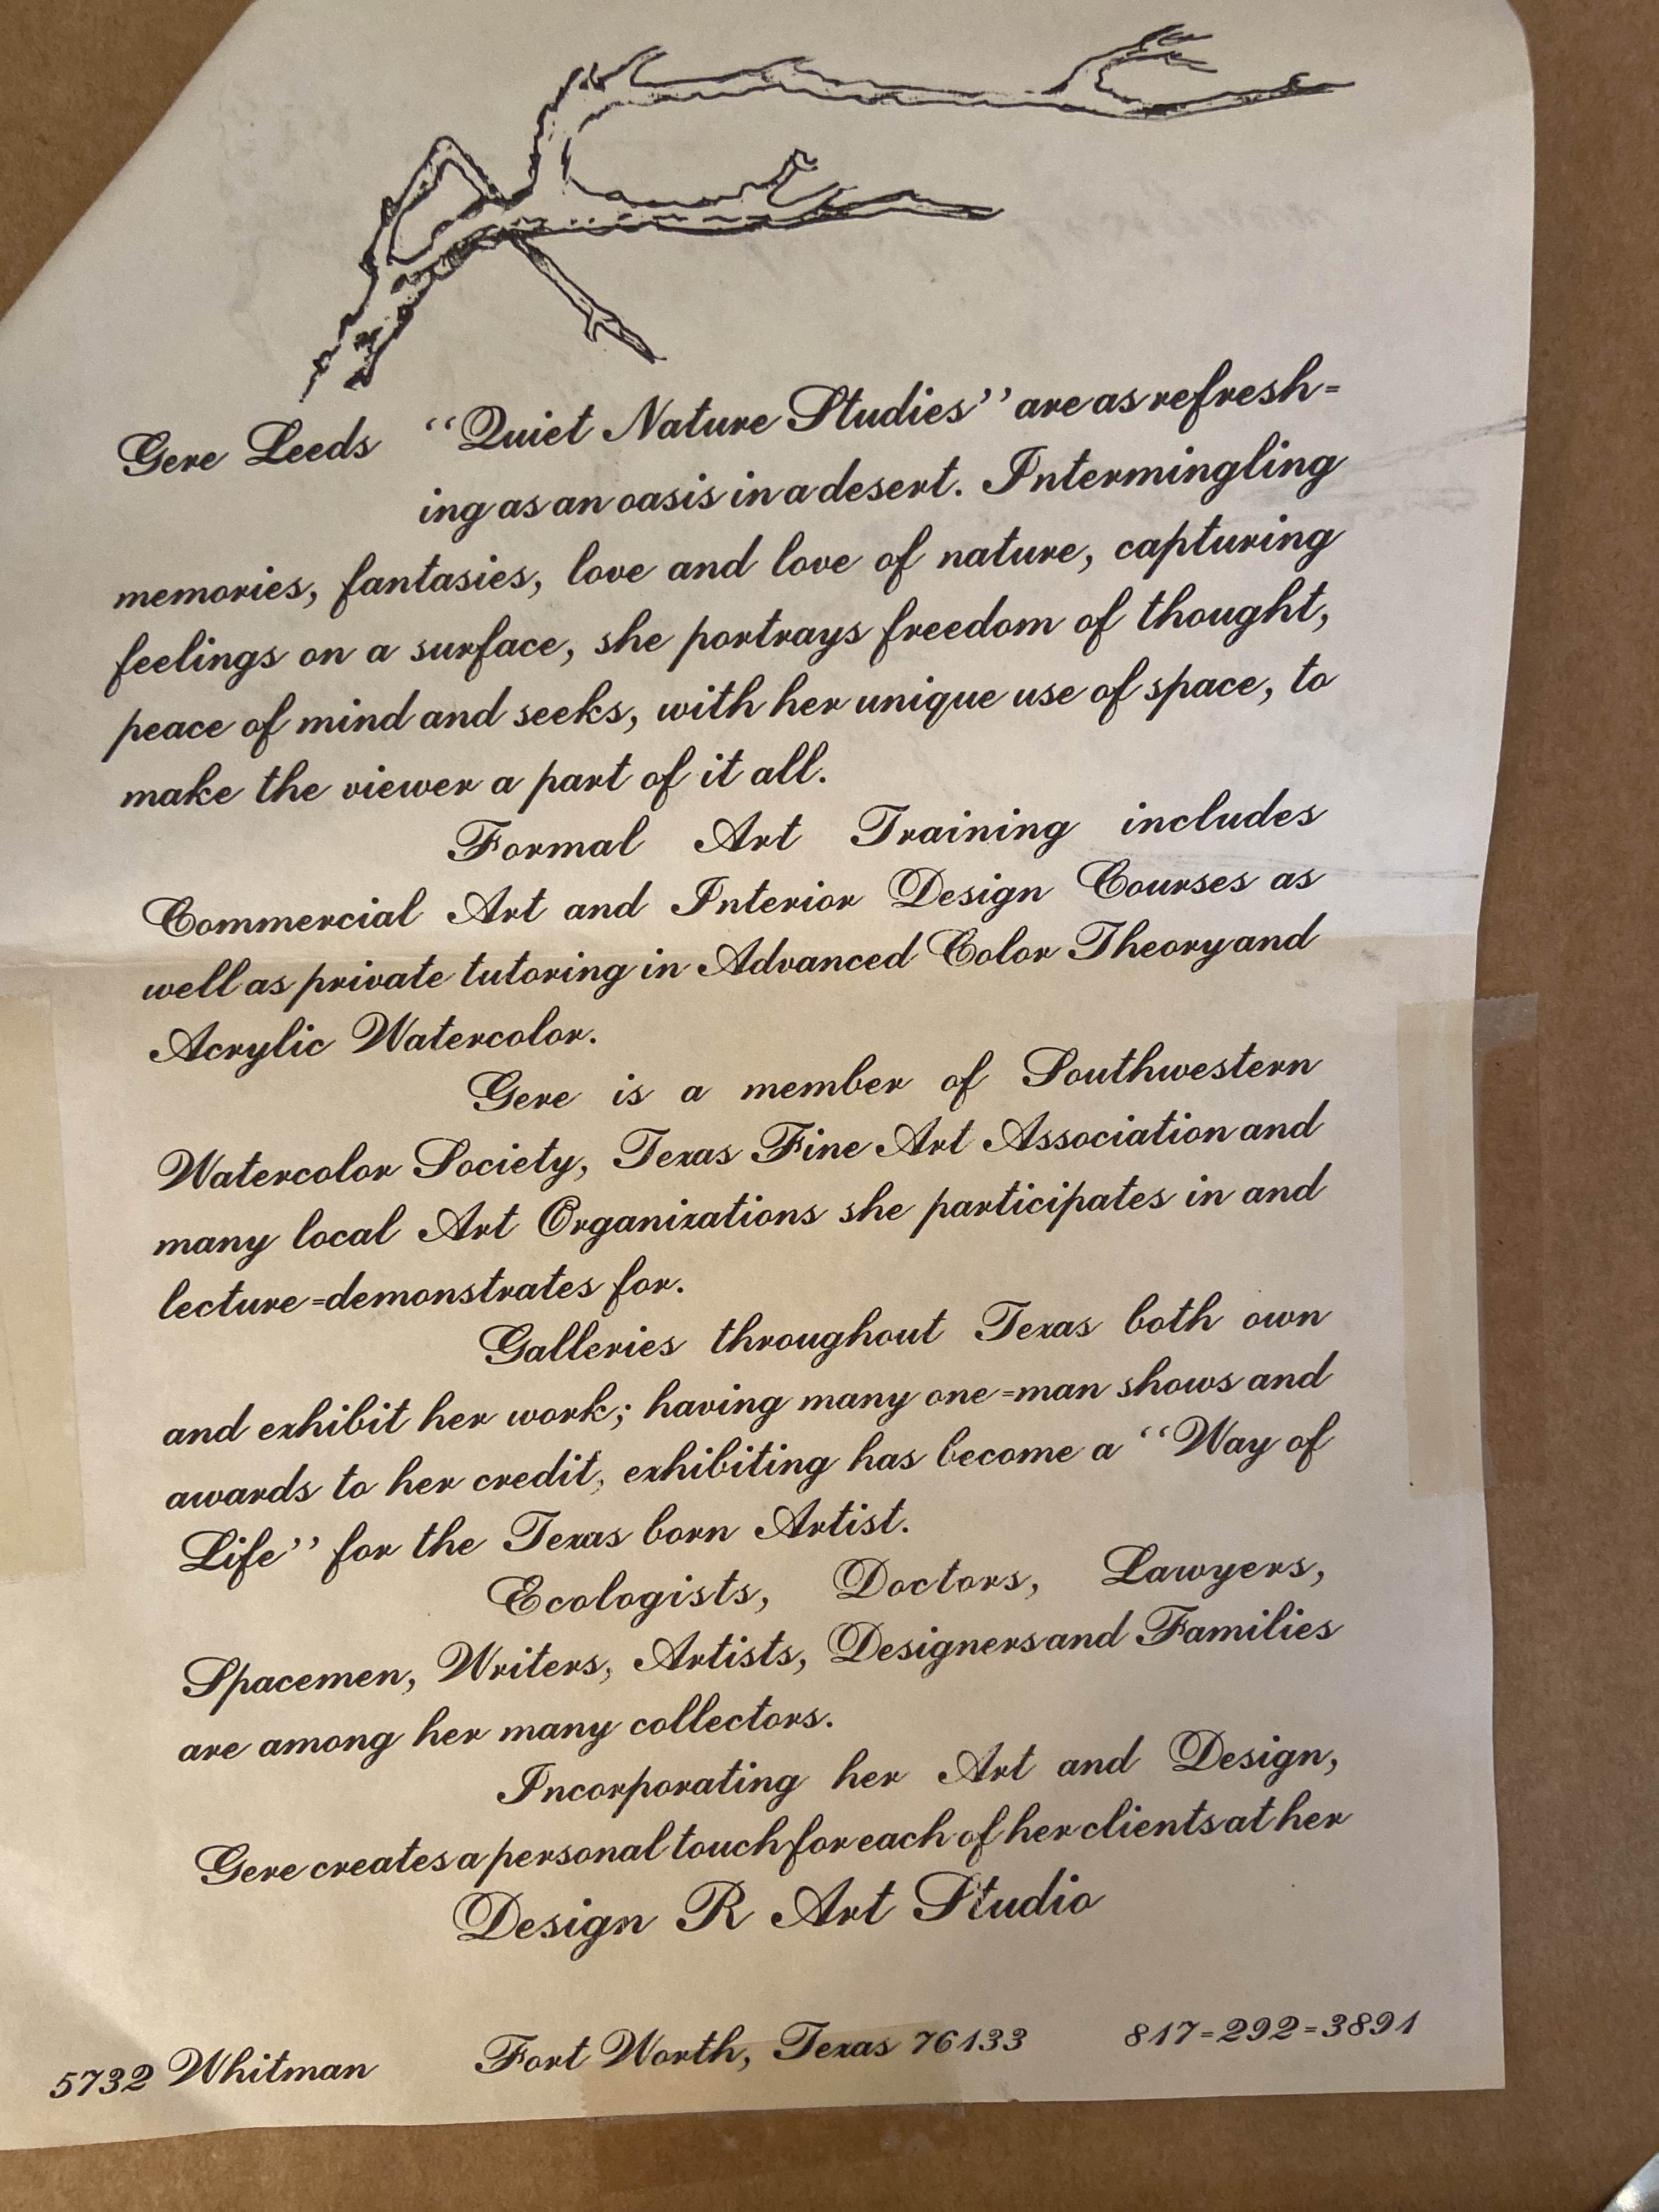 Gere Leeds “Quiet Nature Studies” are as refresh=
ing as an oasis in a desert. Intermingling
memories, fantasies, love and love of nature, capturing
feelings on a surface, she portrays freedom of thought,
peace of mind and seeks, with her unique use of space, to
make the viewer a part of it all.
Formal Art Training includes
Commercial Art and Interior Design Courses as
well as private tutoring in Advanced Color Theory and
Acrylic Watercolor.
Gere is a member of Southwestern
Watercolor Society, Texas Fine Art Association and
many local Art Organizations she participates in and
lecture=demonstrates for.
Galleries throughout Texas both own
and exhibit her work; having many one=man shows and
awards to her credit, exhibiting has become a “Way of
Life” for the Texas born Artist.
Ecologists, Doctors, Lawyers,
Spacemen, Writers, Artists, Designers and Families
are among her many collectors.
Incorporating her Art and Design,
Gere creates a personal touch for each of her clients at her
Design R Art Studio
5732 Whitman Fort Worth, Texas 76133 817=292=3891